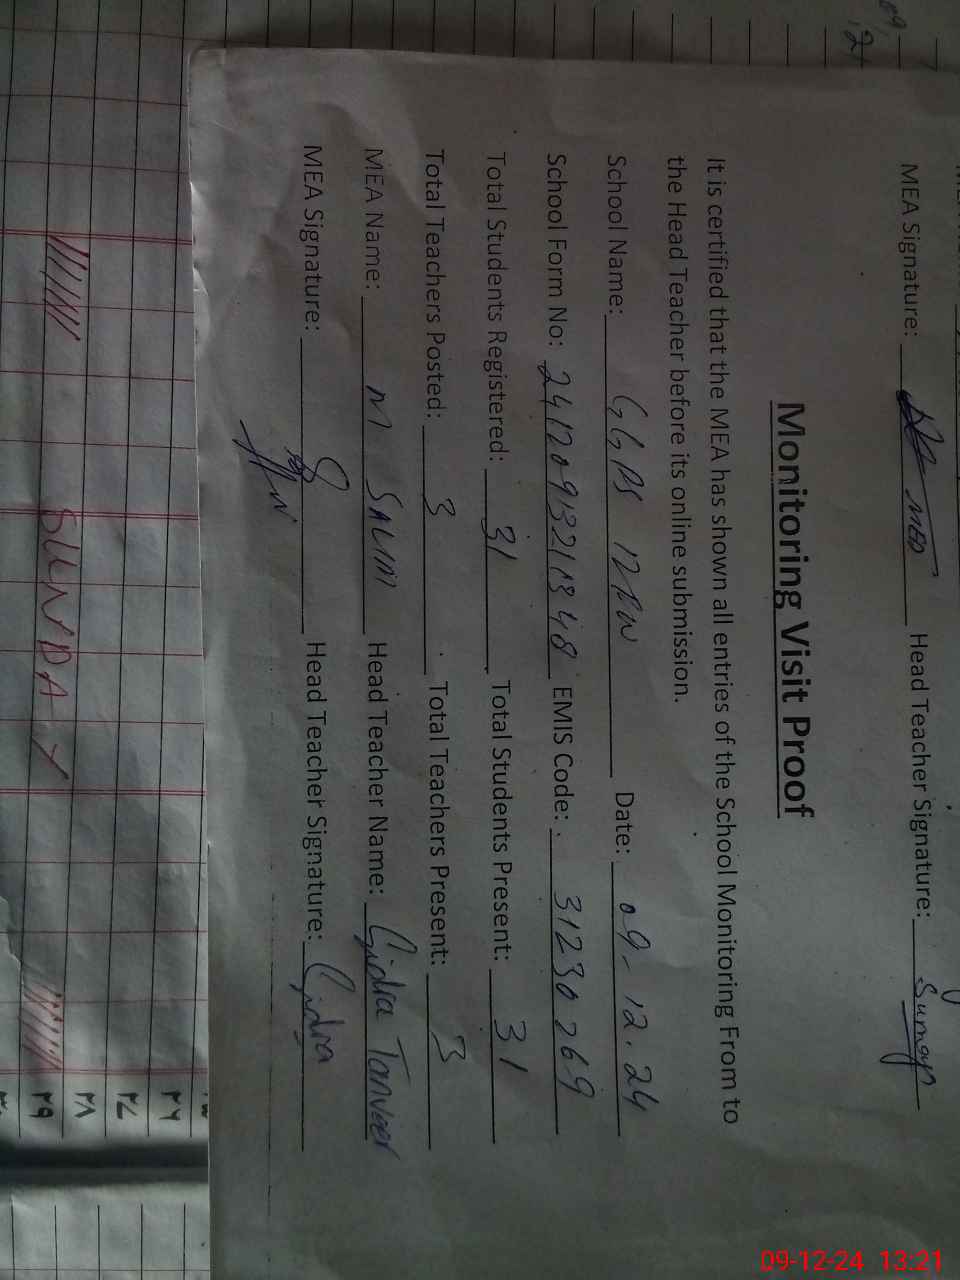 MEA Signature: Head Teacher Signature: Sumaya
Monitoring Visit Proof
It is certified that the MEA has shown all entries of the School Monitoring From to
the Head Teacher before its online submission.
School Name: GGPS Date: 09-12.24
School Form No: EMIS Code: 31230269
Total Students Registered: 31 Total Students Present: 31
Total Teachers Posted: 3 Total Teachers Present: 3
MEA Name: M SALIM Head Teacher Name: Sidra Tanveer
MEA Signature: Head Teacher Signature: Sidra
SUNDAY
۲۶
۲۷
۲۸
۲۹
09-12-24 13:21